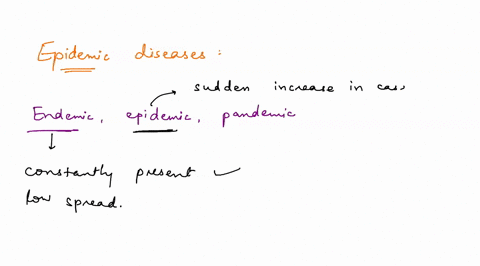 Epidemic diseases :
sudden increase in cas
Endemic, epidemic, pandemic
constantly present
low spread.